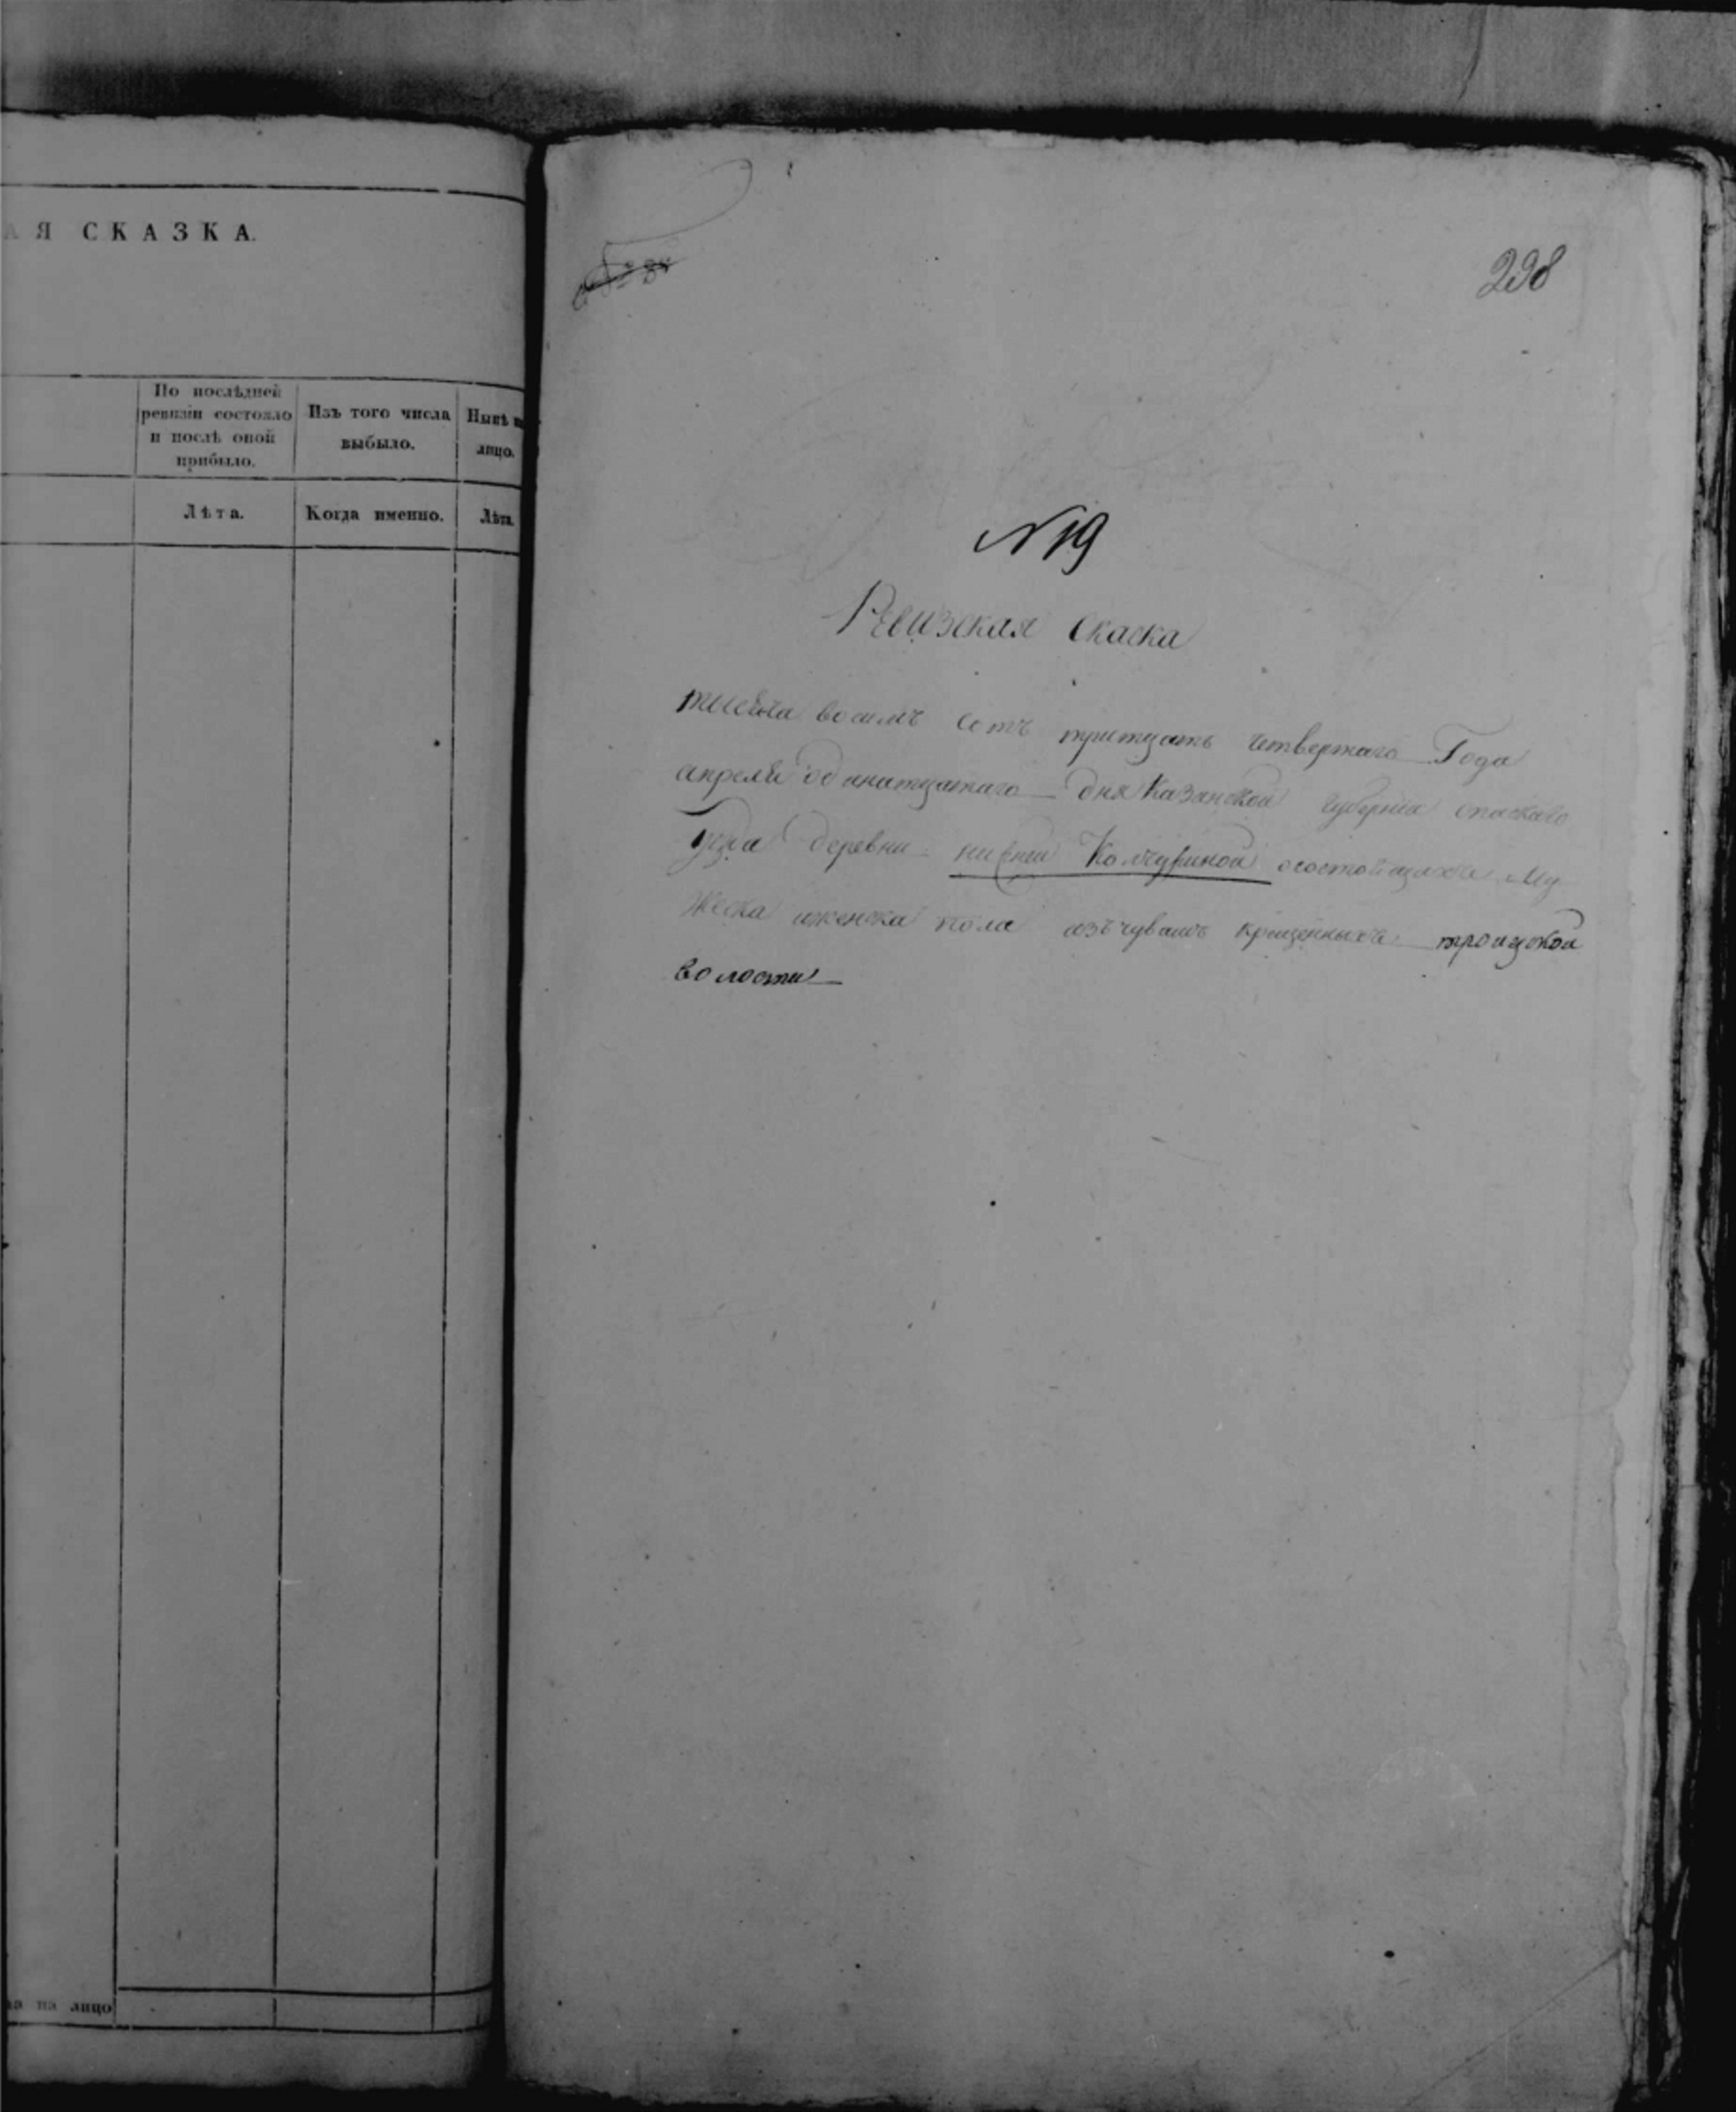 АЯ СКАЗКА.
По послѣдней
ревизіи состояло
и послѣ оной
прибыло.
Изъ того числа
выбыло.
Нынѣ на
лицо.
Лѣта.
Когда именно.
Лѣта.
на лицо
298
N 19
Ревизская Скаска
тысеча восемъ сотъ тритцать четвертаго Года
апреля одинатцатаго дня Казанской губерніи спаского
уезда деревни нижнеи Колчуриной осостоящихъ му
жеска иженска пола изъчувашъ крещенныхъ троицкои
волости